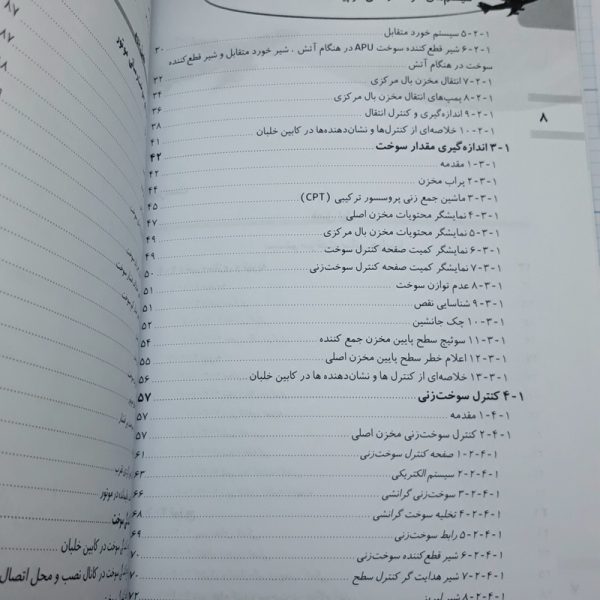 ۱-۲-۵ سیستم خورد متقابل
۱-۲-۶ شیر قطع‌کننده سوخت APU در هنگام آتش ، شیر خورد متقابل و شیر قطع‌کننده ۳۰
سوخت در هنگام آتش
۱-۲-۷ انتقال مخزن بال مرکزی ۳۲
۱-۲-۸ پمپ‌های انتقال مخزن بال مرکزی ۳۴
۱-۲-۹ اندازه‌گیری و کنترل انتقال ۳۶
۱-۲-۱۰ خلاصه‌ای از کنترل‌ها و نشان‌دهنده‌ها در کابین خلبان ۳۸
۱-۳ اندازه‌گیری مقدار سوخت ۴۱
۱-۳-۱ مقدمه ۴۲
۱-۳-۲ پراب مخزن ۴۲
۱-۳-۳ ماشین جمع زنی پروسسور ترکیبی (CPT) ۴۴
۱-۳-۴ نمایشگر محتویات مخزن اصلی ۴۵
۱-۳-۵ نمایشگر محتویات مخزن بال مرکزی ۴۷
۱-۳-۶ نمایشگر کمیت صفحه کنترل سوخت ۴۹
۱-۳-۷ نمایشگر کمیت صفحه کنترل سوخت‌زنی ۴۹
۱-۳-۸ عدم توازن سوخت ۵۰
۱-۳-۹ شناسایی نقص ۵۱
۱-۳-۱۰ چک جانشین ۵۱
۱-۳-۱۱ سوئیچ سطح پایین مخزن جمع کننده ۵۲
۱-۳-۱۲ اعلام خطر سطح پایین مخزن اصلی ۵۴
۱-۳-۱۳ خلاصه‌ای از کنترل ها و نشان‌دهنده ها در کابین خلبان ۵۵
۱-۴ کنترل سوخت‌زنی ۵۶
۱-۴-۱ مقدمه ۵۷
۱-۴-۲ کنترل سوخت‌زنی مخزن اصلی ۵۷
۱-۴-۲-۱ صفحه کنترل سوخت‌زنی ۵۷
۱-۴-۲-۲ سیستم الکتریکی ۶۱
۱-۴-۲-۳ سوخت‌زنی گرانشی ۶۳
۱-۴-۲-۴ تخلیه سوخت گرانشی ۶۶
۱-۴-۲-۵ رابط سوخت‌زنی ۶۸
۱-۴-۲-۶ شیر قطع‌کننده سوخت‌زنی ۶۹
۱-۴-۲-۷ شیر هدایت گر کنترل سطح ۷۰
۱-۴-۲-۸ شیر لبریز ۷۰
۷۲
۸
۸۷
۸۷
سوخت در کابین خلبان
سوخت در کانال نصب و محل اتصال